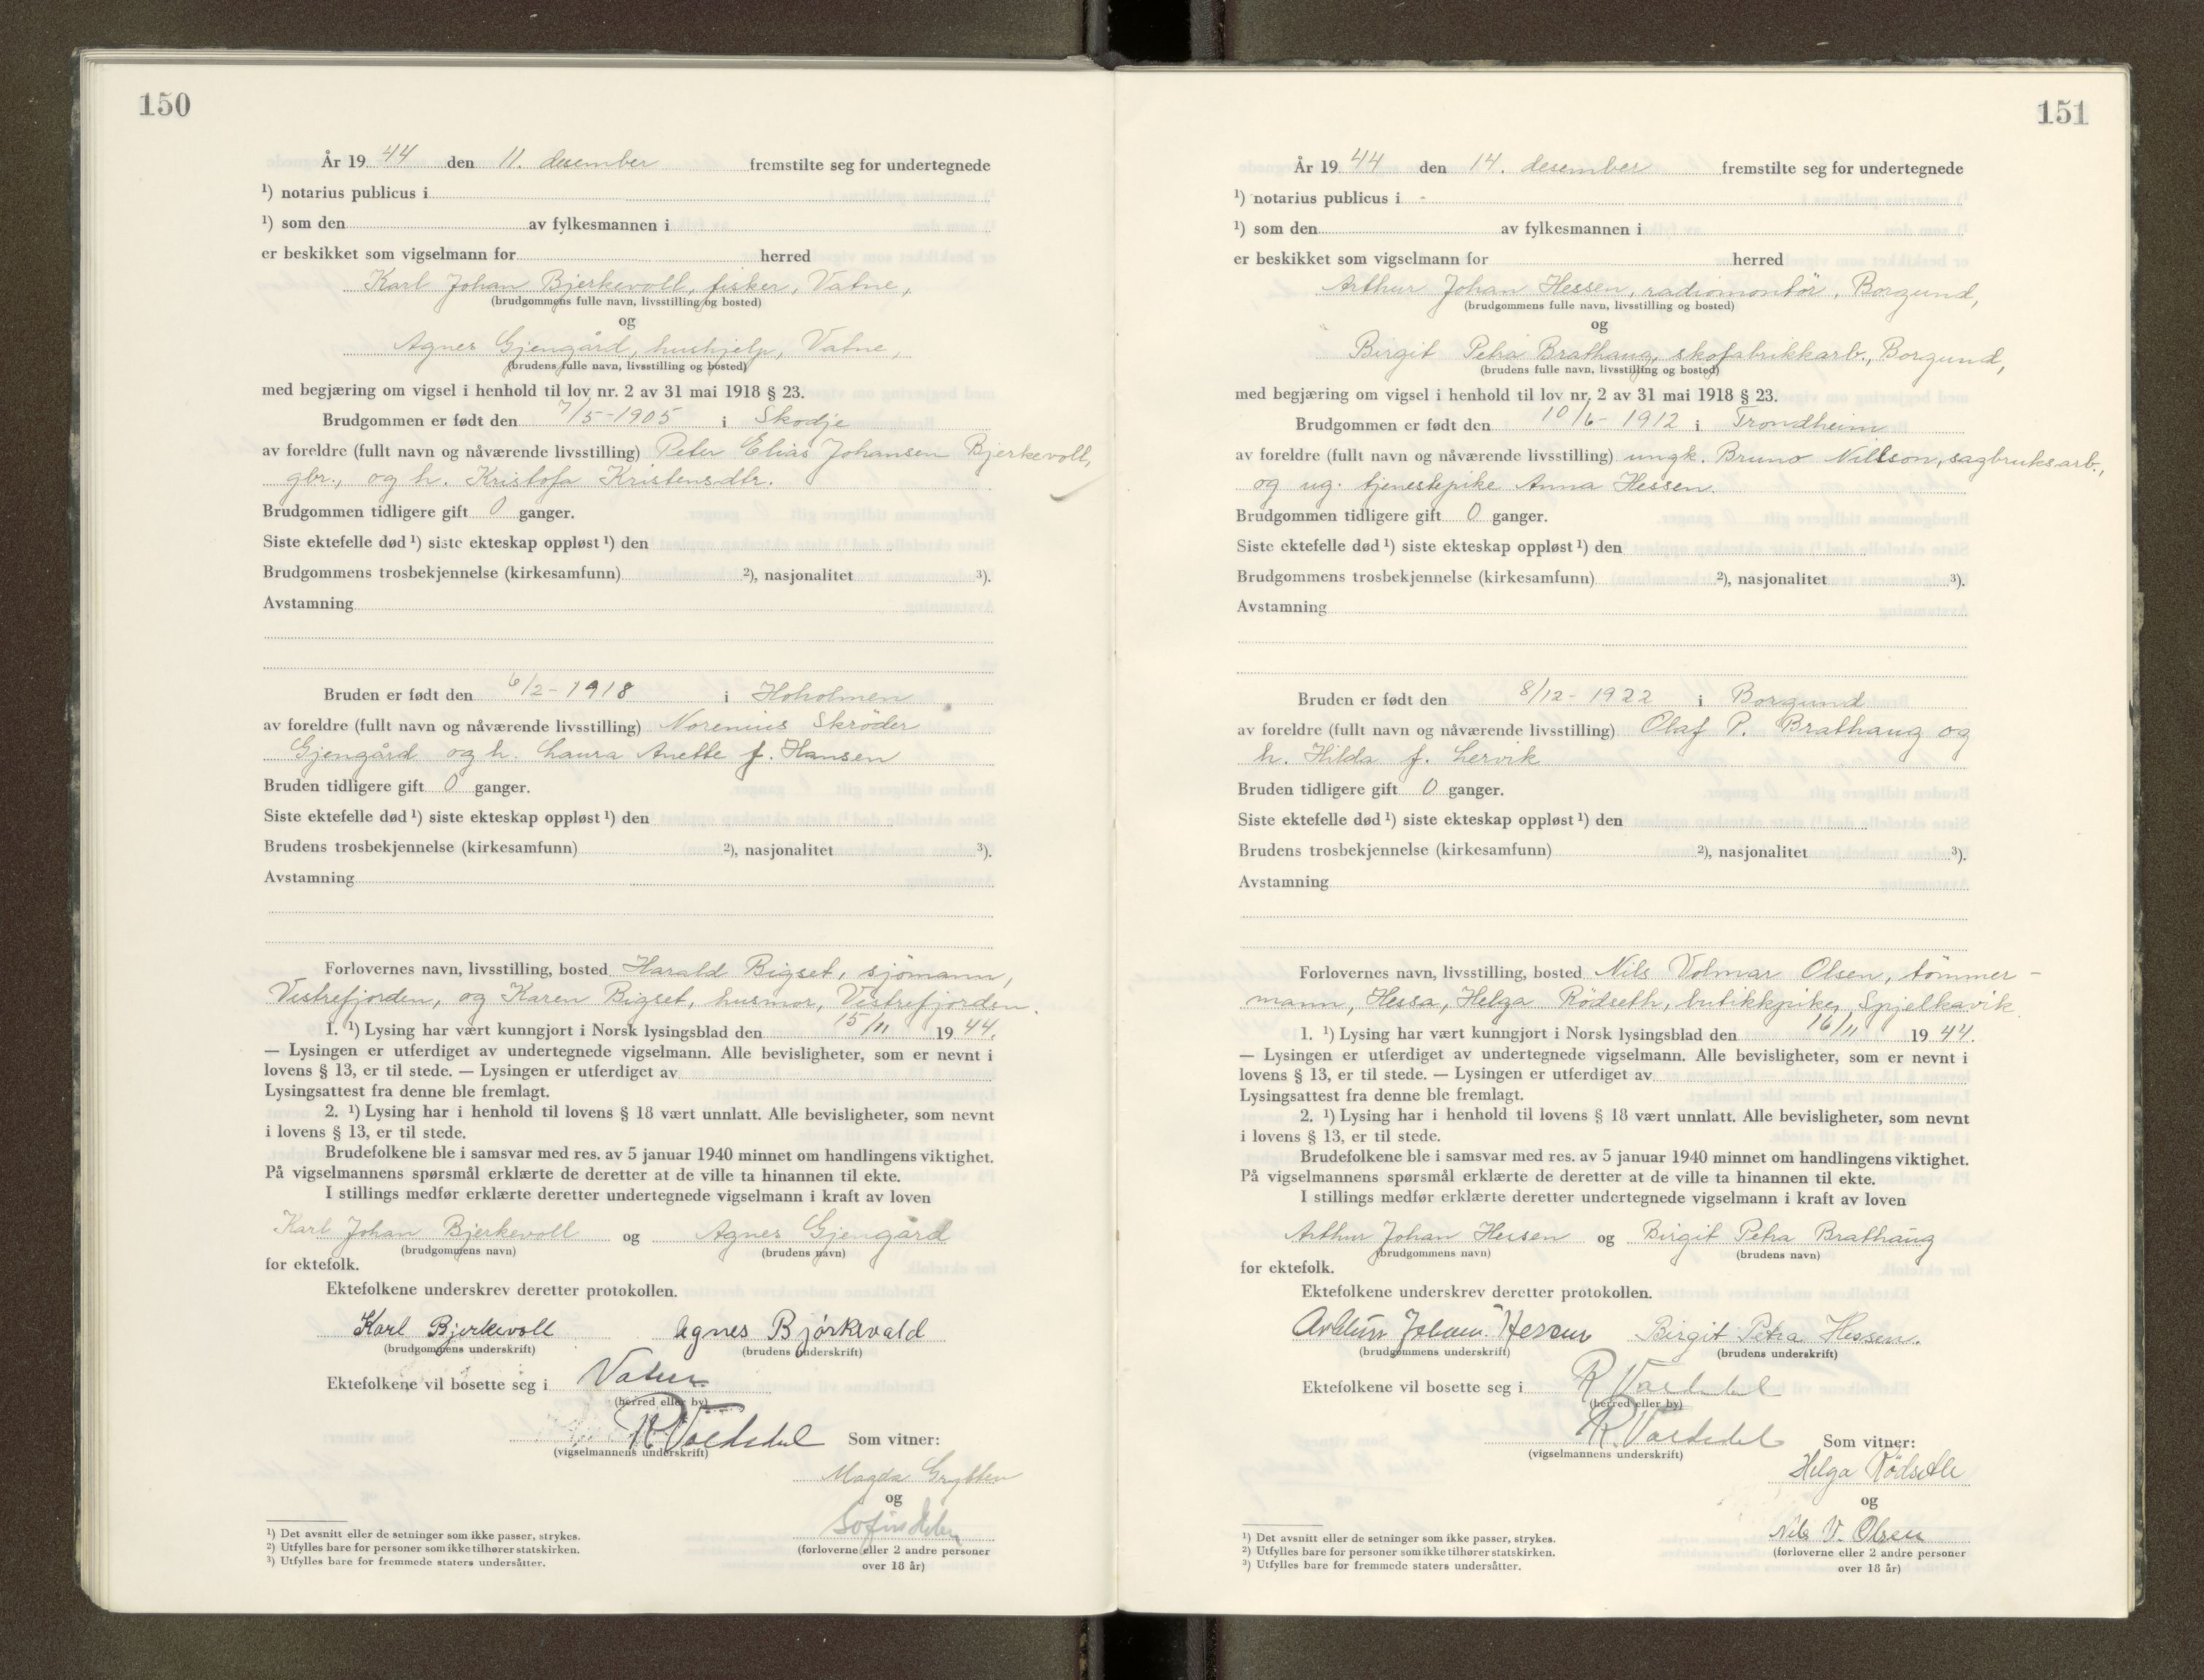 150
År 19 44 den 11. desember fremstilte seg for undertegnede
¹) notarius publicus i
¹) som den av fylkesmannen i
er beskikket som vigselmann for herred
Karl Johan Bjerkevoll, fisker, Vatne,
(brudgommens fulle navn, livsstilling og bosted)
og
Agnes Gjengård, hushjelp, Vatne,
(brudens fulle navn, livsstilling og bosted)
med begjæring om vigsel i henhold til lov nr. 2 av 31 mai 1918 § 23.
Brudgommen er født den 7/5-1905 i Skodje
av foreldre (fullt navn og nåværende livsstilling) Peter Elias Johansen Bjerkevoll,
gbr., og h. Kristofa Kristensdtr.
Brudgommen tidligere gift 0 ganger.
Siste ektefelle død ¹) siste ekteskap oppløst ¹) den
Brudgommens trosbekjennelse (kirkesamfunn) ²), nasjonalitet ³).
Avstamning
Bruden er født den 6/2-1918 i Hoholmen
av foreldre (fullt navn og nåværende livsstilling) Norenius Skröder
Gjengård og h. Laura Anette f. Hansen
Bruden tidligere gift 0 ganger.
Siste ektefelle død ¹) siste ekteskap oppløst ¹) den
Brudens trosbekjennelse (kirkesamfunn) ²), nasjonalitet ³).
Avstamning
Forlovernes navn, livsstilling, bosted Harald Bigset, sjömann,
Vestrefjorden, og Karen Bigset, husmor, Vestrefjorden.
1. ¹) Lysing har vært kunngjort i Norsk lysingsblad den 15/11 19 44.
— Lysingen er utferdiget av undertegnede vigselmann. Alle bevisligheter, som er nevnt i
lovens § 13, er til stede. — Lysingen er utferdiget av
Lysingsattest fra denne ble fremlagt.
2. ¹) Lysing har i henhold til lovens § 18 vært unnlatt. Alle bevisligheter, som nevnt
i lovens § 13, er til stede.
Brudefolkene ble i samsvar med res. av 5 januar 1940 minnet om handlingens viktighet.
På vigselmannens spørsmål erklærte de deretter at de ville ta hinannen til ekte.
I stillings medfør erklærte deretter undertegnede vigselmann i kraft av loven
Karl Johan Bjerkevoll og Agnes Gjengård
(brudgommens navn) (brudens navn)
for ektefolk.
Ektefolkene underskrev deretter protokollen.
Karl Bjerkevoll Agnes Bjørkvald
(brudgommens underskrift) (brudens underskrift)
Ektefolkene vil bosette seg i Vatne
(herred eller by)
Som vitner:
(vigselmannens underskrift)
Magda Grytten
og
(forloverne eller 2 andre personer
over 18 år)
¹) Det avsnitt eller de setninger som ikke passer, strykes.
²) Utfylles bare for personer som ikke tilhører statskirken.
³) Utfylles bare for fremmede staters undersåtter.
151
År 19 44 den 14. desember fremstilte seg for undertegnede
¹) notarius publicus i
¹) som den av fylkesmannen i
er beskikket som vigselmann for herred
Arthur Johan Hessen, radiomontör, Borgund,
(brudgommens fulle navn, livsstilling og bosted)
og
Birgit Petra Brathaug, skofabrikkarb., Borgund,
(brudens fulle navn, livsstilling og bosted)
med begjæring om vigsel i henhold til lov nr. 2 av 31 mai 1918 § 23.
Brudgommen er født den 10/6-1912 i Trondheim
av foreldre (fullt navn og nåværende livsstilling) ungk. Bruno Nillson, sagbruksarb.,
og ug. tjenestepike Anna Hessen.
Brudgommen tidligere gift 0 ganger.
Siste ektefelle død ¹) siste ekteskap oppløst ¹) den
Brudgommens trosbekjennelse (kirkesamfunn) ²), nasjonalitet ³).
Avstamning
Bruden er født den 8/12-1922 i Borgund
av foreldre (fullt navn og nåværende livsstilling) Olaf P. Brathaug og
h. Hilda f. Lervik
Bruden tidligere gift 0 ganger.
Siste ektefelle død ¹) siste ekteskap oppløst ¹) den
Brudens trosbekjennelse (kirkesamfunn) ²), nasjonalitet ³).
Avstamning
Forlovernes navn, livsstilling, bosted Nils Volmar Olsen, tömmer-
mann, Hessa, Helga Rödseth, butikkpike, Spjelkavik
1. ¹) Lysing har vært kunngjort i Norsk lysingsblad den 16/11 19 44.
— Lysingen er utferdiget av undertegnede vigselmann. Alle bevisligheter, som er nevnt i
lovens § 13, er til stede. — Lysingen er utferdiget av
Lysingsattest fra denne ble fremlagt.
2. ¹) Lysing har i henhold til lovens § 18 vært unnlatt. Alle bevisligheter, som nevnt
i lovens § 13, er til stede.
Brudefolkene ble i samsvar med res. av 5 januar 1940 minnet om handlingens viktighet.
På vigselmannens spørsmål erklærte de deretter at de ville ta hinannen til ekte.
I stillings medfør erklærte deretter undertegnede vigselmann i kraft av loven
Arthur Johan Hessen og Birgit Petra Brathaug
(brudgommens navn) (brudens navn)
for ektefolk.
Ektefolkene underskrev deretter protokollen.
Arthur Johan Hessen Birgit Petra Hessen.
(brudgommens underskrift) (brudens underskrift)
Ektefolkene vil bosette seg i
(herred eller by)
Som vitner:
(vigselmannens underskrift)
Helga Rödseth
og
Nils V. Olsen
(forloverne eller 2 andre personer
over 18 år)
¹) Det avsnitt eller de setninger som ikke passer, strykes.
²) Utfylles bare for personer som ikke tilhører statskirken.
³) Utfylles bare for fremmede staters undersåtter.